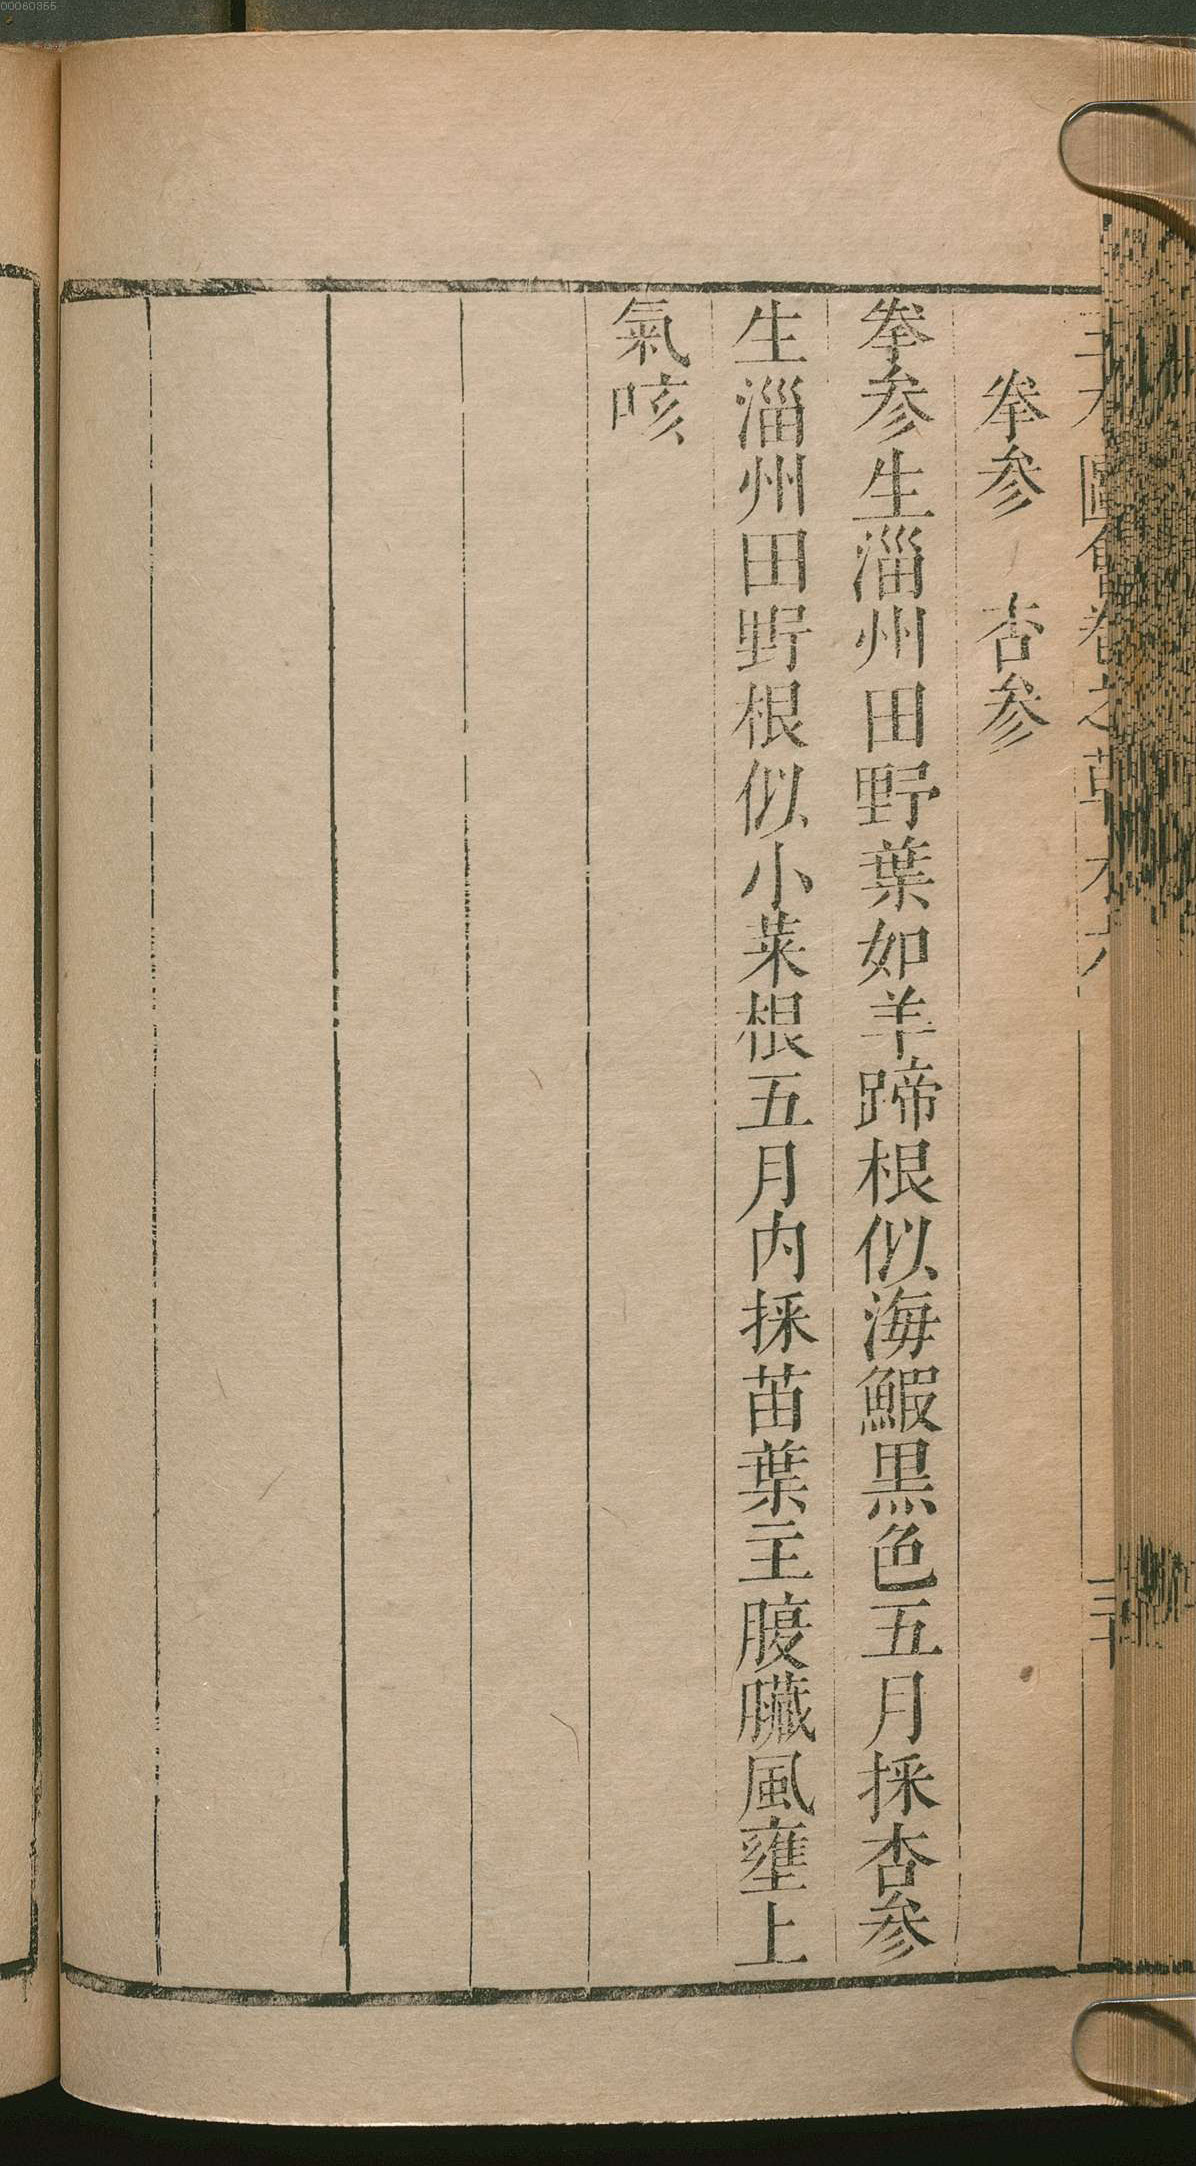 三才圖會卷之草木六
拳参 杏参
拳参生淄州田野葉如羊蹄根似海鰕黒色五月採杏参
生淄州田野根似小菜根五月内採苗葉主腹臟風壅上
氣咳
00060355